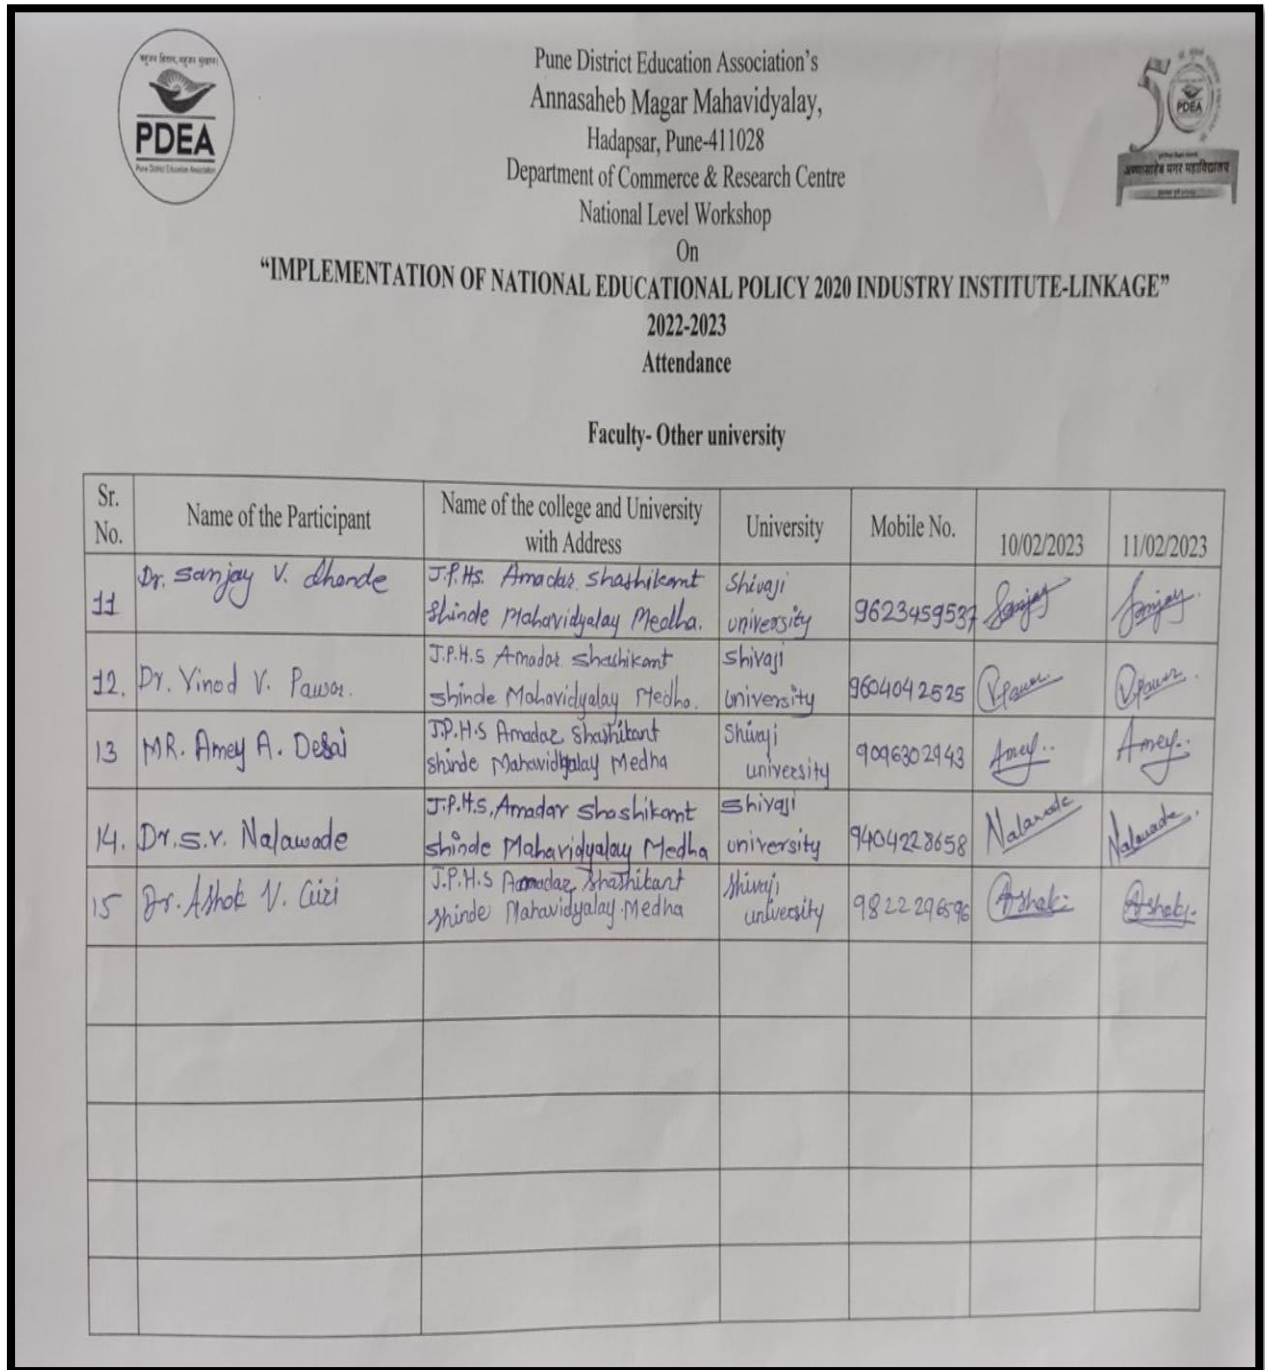 बहुजन हिताय, बहुजन सुखाय।
PDEA
Pune District Education Association
Pune District Education Association's
Annasaheb Magar Mahavidyalay,
Hadapsar, Pune-411028
Department of Commerce & Research Centre
National Level Workshop
On
“IMPLEMENTATION OF NATIONAL EDUCATIONAL POLICY 2020 INDUSTRY INSTITUTE-LINKAGE”
2022-2023
Attendance
50
PDEA
अण्णासाहेब मगर महाविद्यालय
Faculty- Other university
Sr. No. Name of the Participant Name of the college and University with Address University Mobile No. 10/02/2023 11/02/2023
11 Dr. Sanjay V. dhonde J.P.Hs. Amadar Shashikant Shivaji
Shinde Mahavidyalay Medha. university 9623459537 Sanjay Sanjay.
12. Dr. Vinod V. Pawar. J.P.H.S Amadar Shashikant Shivaji
Shinde Mahavidyalay Medha. university 9604042525 VPawar VPawar.
13 MR. Amey A. Desai J.P.H.S Amadar Shashikant Shivaji
Shinde Mahavidyalay Medha university 9096302943 Amey.. Amey..
14. Dr. S.V. Nalawade J.P.H.S, Amadar Shashikant Shivaji
Shinde Mahavidyalay Medha university 9404228658 Nalawade Nalawade.
15 Dr. Ashok V. Giri J.P.H.S Amadar Shashikant Shivaji
Shinde Mahavidyalay Medha university 9822296596 Ashok Ashok